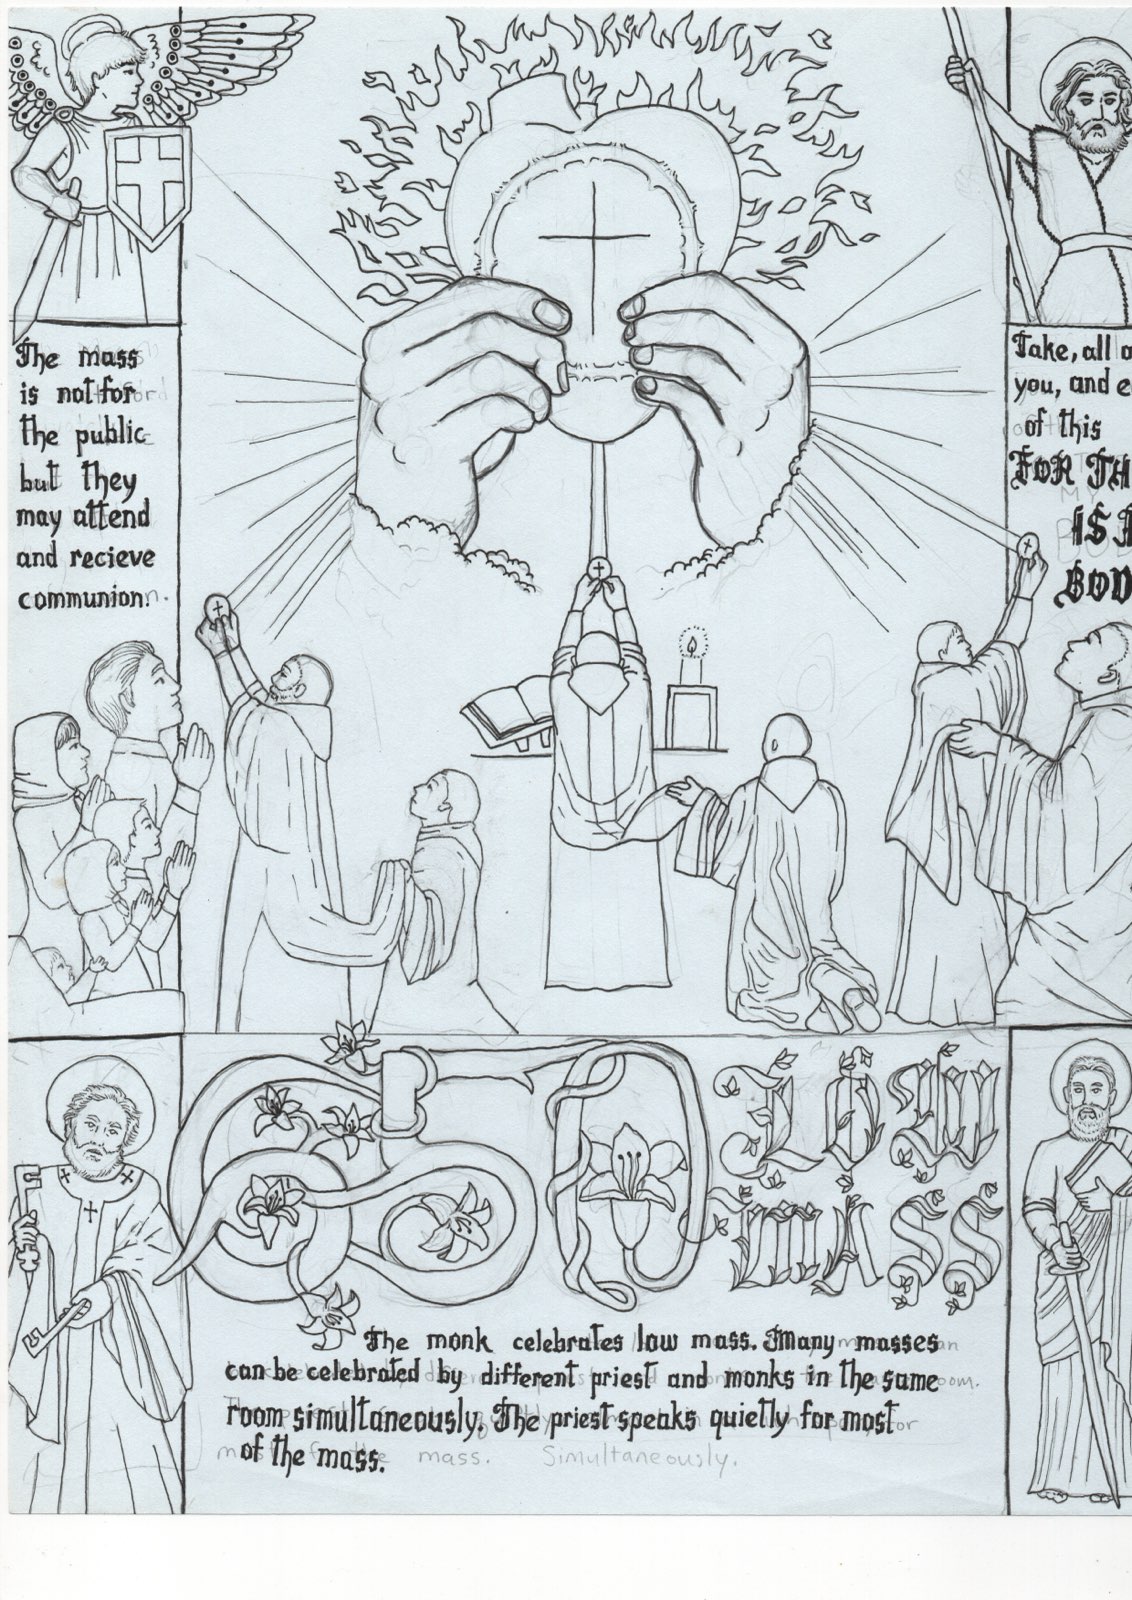 The mass
is not for
the public
but they
may attend
and recieve
communion.
Take, all o
you, and e
of this
FOR TH
IS
BOD
50 LOW
mASS
The monk celebrates low mass. Many masses
can be celebrated by different priest and monks in the same
room simultaneously. The priest speaks quietly for most
of the mass.
mass. Simultaneously.